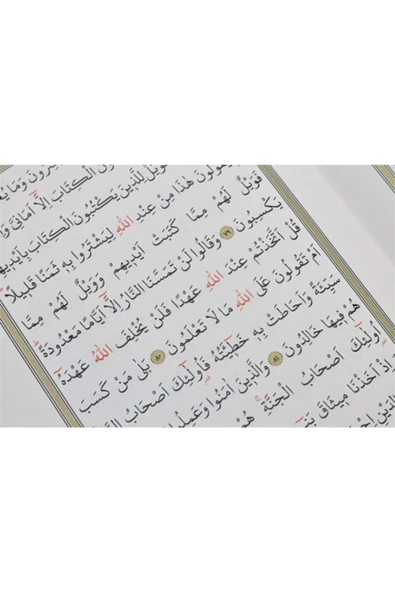 ـسِرُّونَ وَمَا يُـ
ـونَ الْكِتَابَ اِلَّٓا اَمَانِيَّ وَ
ـوَيْلٌ لِلَّذِينَ يَكْتُبُونَ الْكِتَابَ بِاَيْدِيهِـ
يَقُولُونَ هٰذَا مِنْ عِنْدِ اللّٰهِ لِيَشْتَرُوا بِهِ ثَمَنًا قَلِيلًا
فَوَيْلٌ لَهُمْ مِمَّا كَتَبَتْ اَيْدِيهِمْ وَوَيْلٌ لَهُمْ مِمَّا
يَكْسِبُونَ ٧٩ وَقَالُوا لَنْ تَمَسَّنَا النَّارُ اِلَّٓا اَيَّامًا مَعْدُودَةً
قُلْ اَتَّخَذْتُمْ عِنْدَ اللّٰهِ عَهْدًا فَلَنْ يُخْلِفَ اللّٰهُ عَهْدَهُ
اَمْ تَقُولُونَ عَلَى اللّٰهِ مَا لَا تَعْلَمُونَ ٨٠ بَلٰى مَنْ كَسَبَ
سَيِّئَةً وَاَحَاطَتْ بِهِ خَطِٓيئَتُهُ فَاُولٰٓئِكَ اَصْحَابُ النَّـ
هُمْ فِيهَا خَالِدُونَ ٨١ وَالَّذِينَ اٰمَنُوا وَعَمِلُوا
اُولٰٓئِكَ اَصْحَابُ الْجَنَّةِ هُمْ
اِذْ اَخَذْنَا مِيثَاقَ بَنِـ